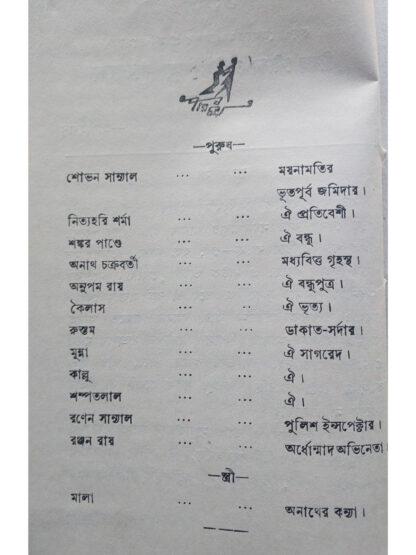 পরিচয়
—পুরুষ—
শোভন সান্যাল ... ... ময়নামতির
ভূতপূর্ব জমিদার।
নিত্যহরি শর্মা ... ... ঐ প্রতিবেশী।
শঙ্কর পাণ্ডে ... ... ঐ বন্ধু।
অনাথ চক্রবর্তী ... ... মধ্যবিত্ত গৃহস্থ।
অনুপম রায় ... ... ঐ বন্ধুপুত্র।
কৈলাস ... ... ঐ ভৃত্য।
রুস্তম ... ... ডাকাত-সর্দার।
মুন্না ... ... ঐ সাগরেদ।
কাল্লু ... ... ঐ।
শম্পতলাল ... ... ঐ।
রণেন সান্যাল ... ... পুলিশ ইন্সপেক্টার।
রঞ্জন রায় ... ... অর্ধোন্মাদ অভিনেতা।
—স্ত্রী—
মালা ... ... অনাথের কন্যা।